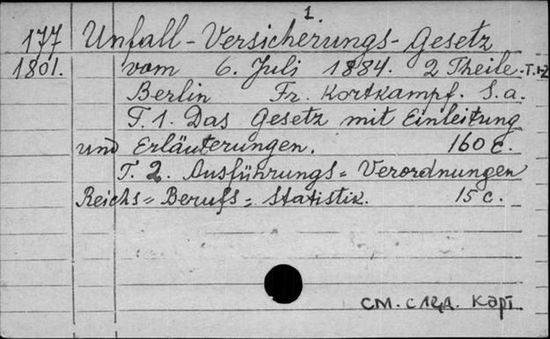 1.
177 Unfall-Versicherungs-Gesetz
1801. vom 6. Juli 1884. 2 Theile. T.1-2
Berlin Fr. Kortkampf. S.a.
T. 1. Das Gesetz mit Einleitung
und Erläuterungen. 160 c.
T. 2. Ausführungs= Verordnungen
Reichs= Berufs= Statistik. 15 c.
см. след. карт.